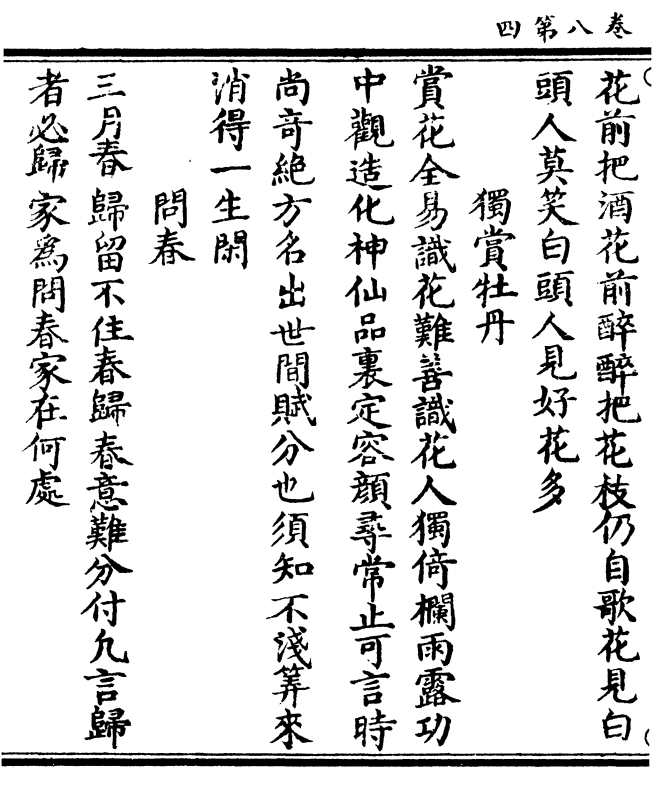 卷八第四
花前把酒花前醉醉把花枝仍自歌花見白
頭人莫笑白頭人見好花多
獨賞牡丹
賞花全易識花難善識花人獨倚欄雨露功
中觀造化神仙品裏定容顔尋常止可言時
尚奇絶方名出世間賦分也須知不淺筭來
消得一生閑
問春
三月春歸留不住春歸春意難分付凢言歸
者必歸家爲問春家在何處